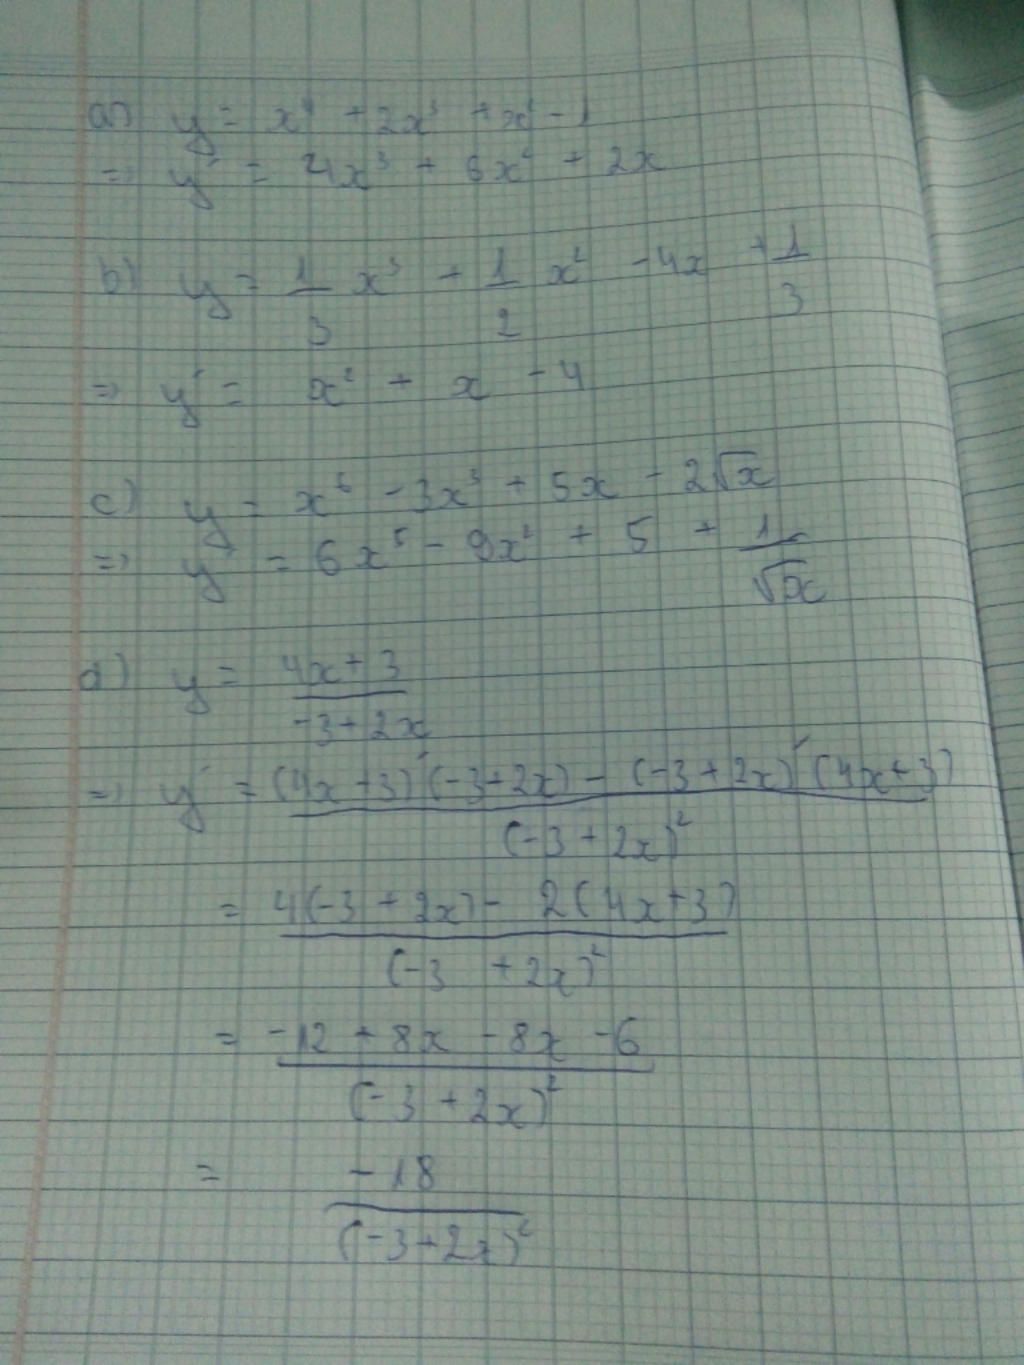 a) y = x⁴ + 2x³ + x² - 1
=> y' = 4x³ + 6x² + 2x
b) y = 1/3 x³ + 1/2 x² - 4x + 1/3
=> y' = x² + x - 4
c) y = x⁶ - 3x³ + 5x - 2√x
=> y' = 6x⁵ - 9x² + 5 + 1/√x
d) y = (4x + 3)/(-3 + 2x)
=> y' = ((4x + 3)'(-3 + 2x) - (-3 + 2x)'(4x + 3))/(-3 + 2x)²
= (4(-3 + 2x) - 2(4x + 3))/(-3 + 2x)²
= (-12 + 8x - 8x - 6)/(-3 + 2x)²
= -18/(-3 + 2x)²